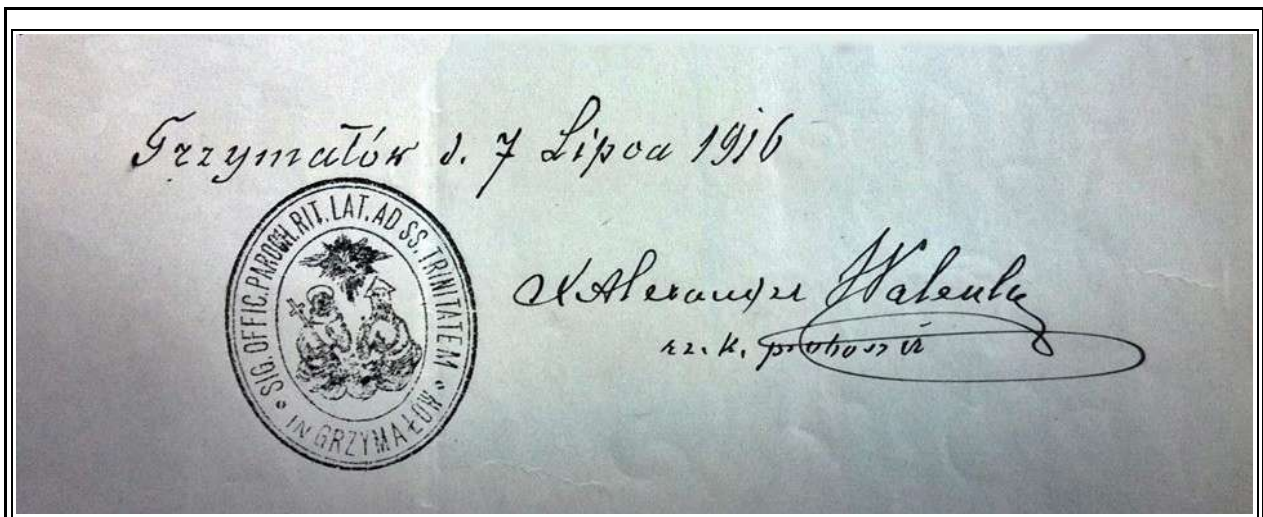 Grzymałów d. 7 Lipca 1916
SIG. OFFIC. PAROCH. RIT. LAT. AD SS. TRINITATEM
IN GRZYMAŁÓW
X Alexander Walenta
rz. k. proboszcz